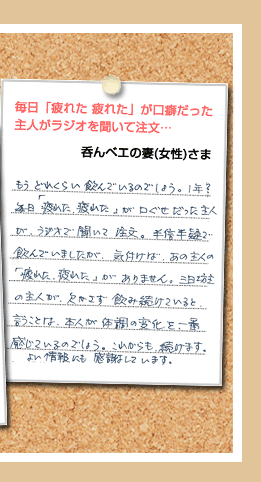 毎日「疲れた 疲れた」が口癖だった
主人がラジオを聞いて注文…
呑んべエの妻(女性)さま
もう どれくらい 飲んでいるのでしょう。1年?
毎日「疲れた、疲れた」が 口ぐせだった主人
が、ラジオで 聞いて 注文。半信半疑で
飲んでいましたが、気付けば、あの主人の
「疲れた、疲れた」が ありません。三日坊主
の主人が、欠かさず 飲み続けていると
言うことは、本人が 体調の変化を一番
感じているのでしょう。これからも 続けます。
よい情報にも 感謝しています。